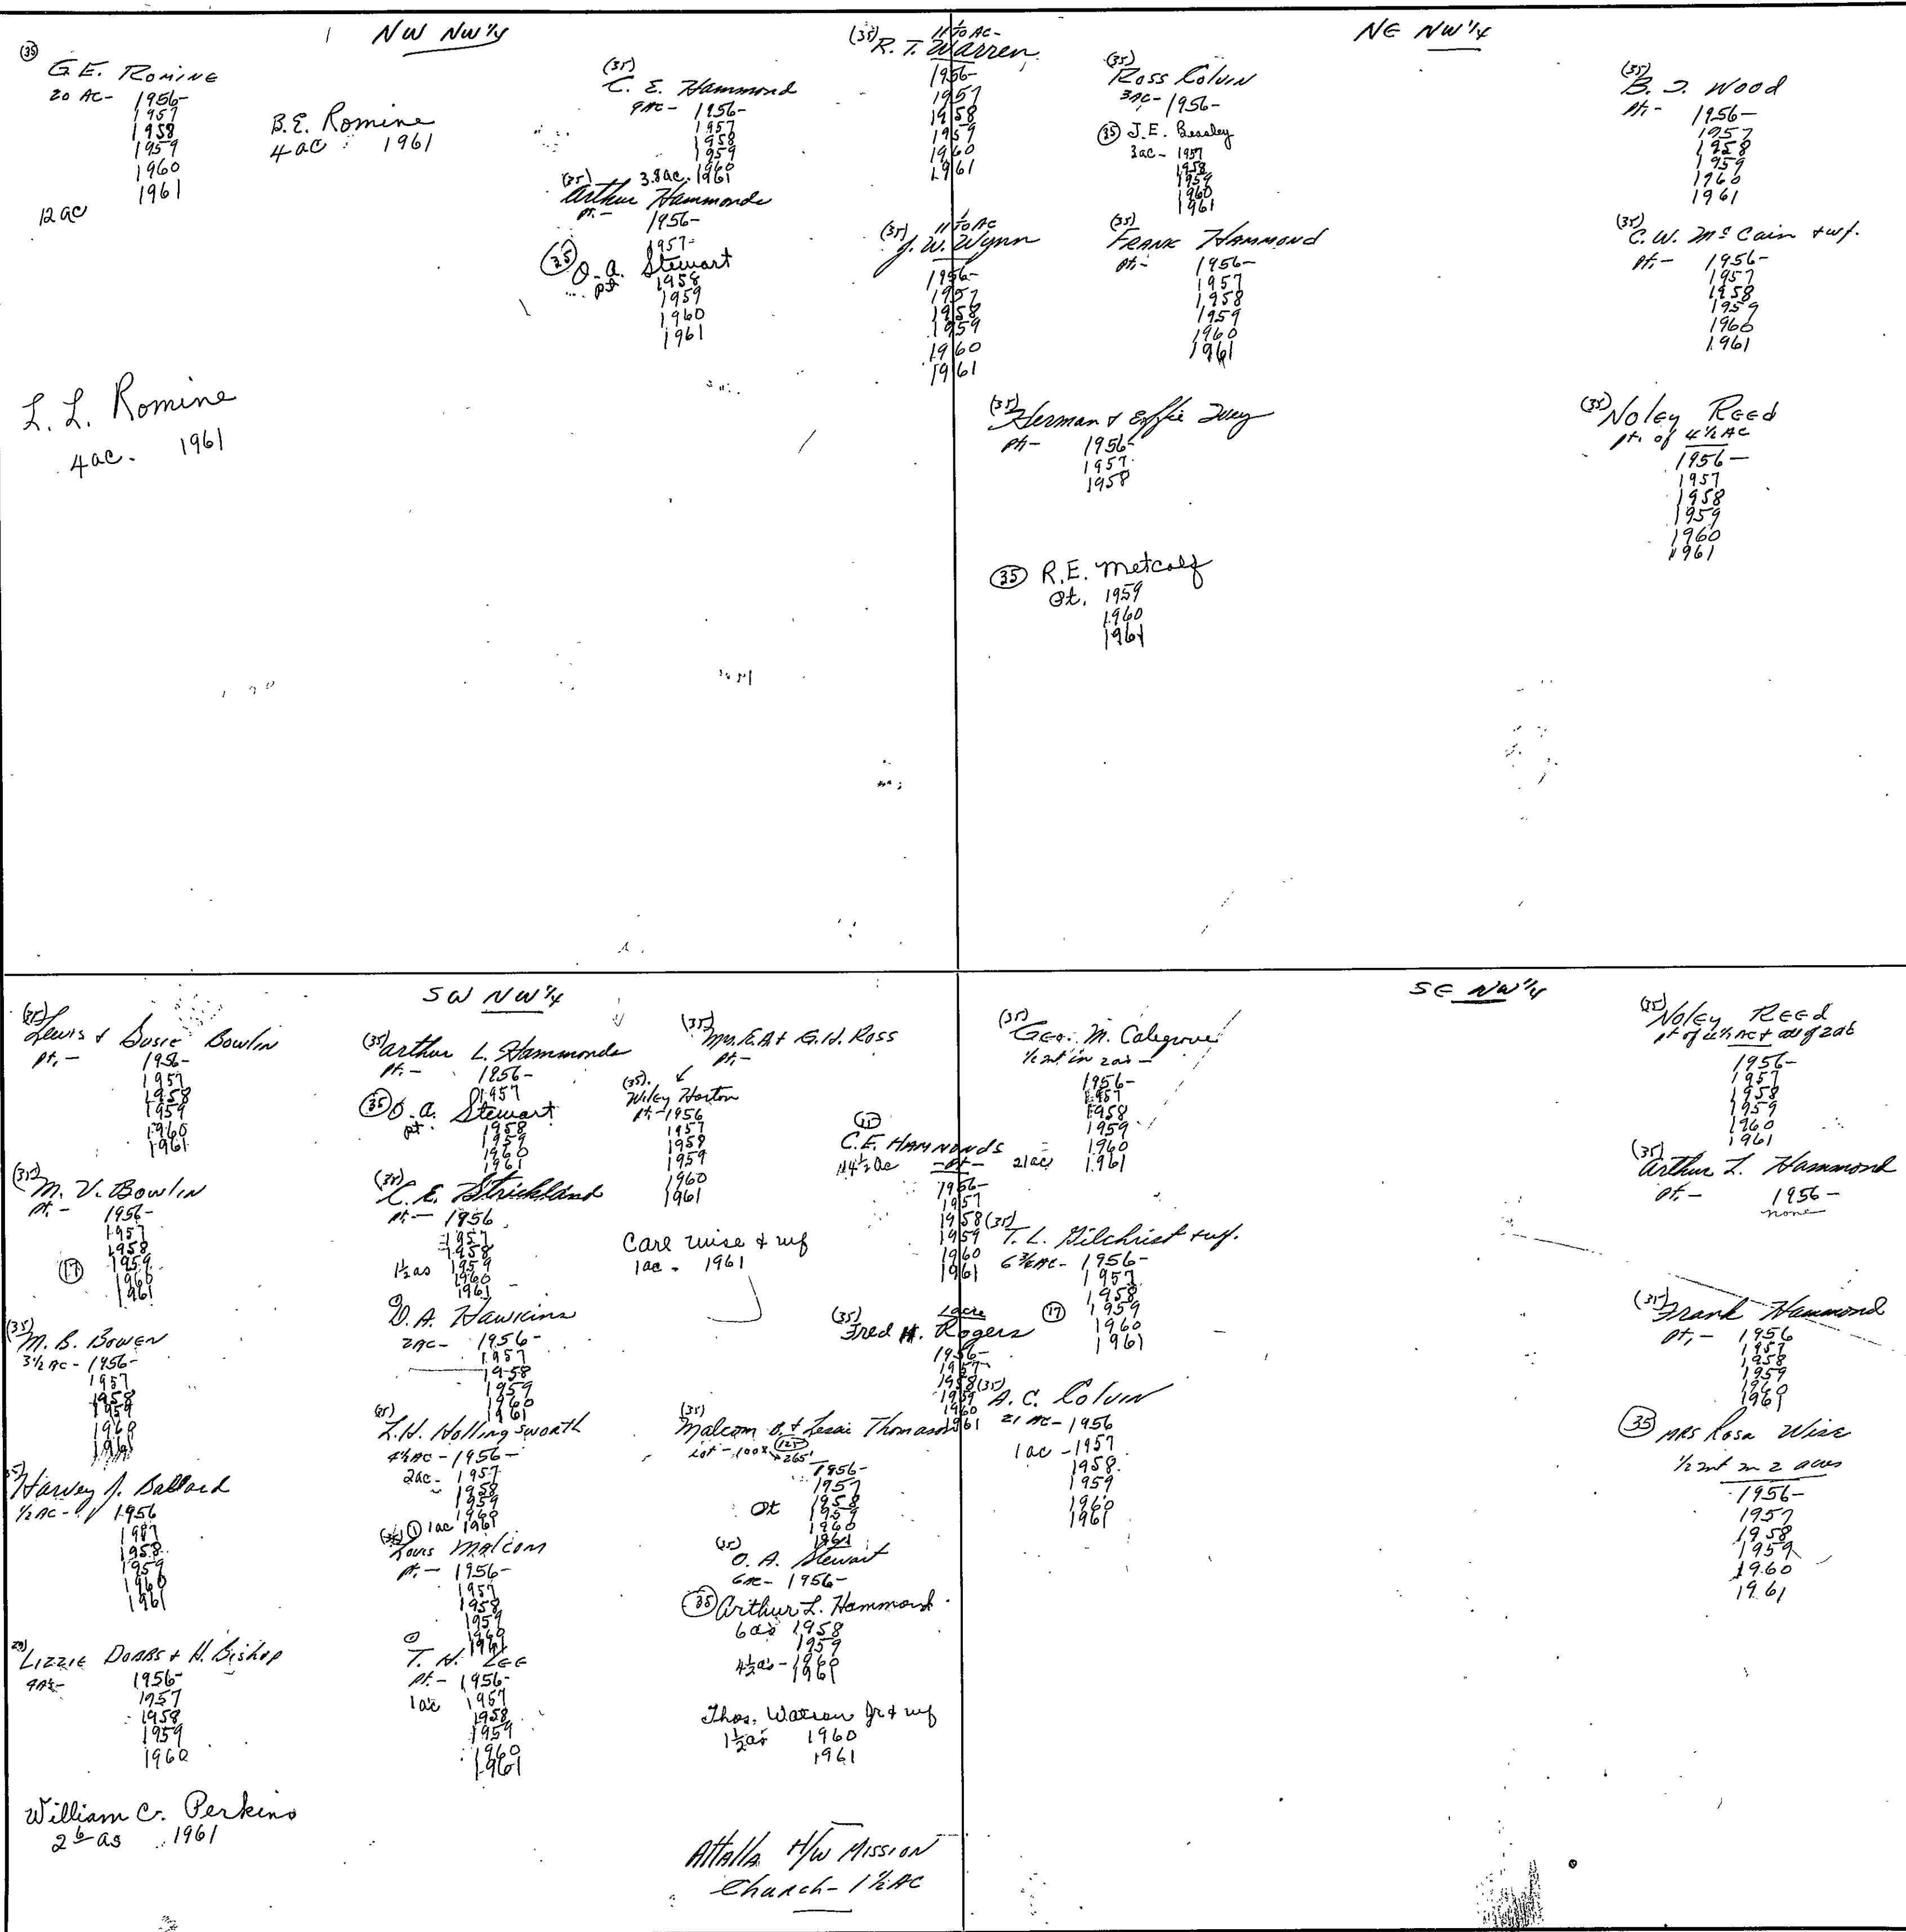 NW NW 1/4
(35)
G.E. ROMINE
20 AC- 1956-
1957
1958
1959
1960
1961
12 ac
B.E. Romine
4 ac 1961
L. L. Romine
4 ac. 1961
(35)
C. E. Hammond
9 AC- 1956-
1957
1958
1959
1960
3.8 ac. 1961
(35)
Arthur Hammonds
pt.- 1956-
1957-
(35)
O. A. Stewart
pt 1958
1959
1960
1961
(35) R. T. Warren
1956-
1957
1958
1959
1960
1961
(35)
J. W. Wynn
1956-
1957
1958
1959
1960
1961
NE NW 1/4
(35)
Ross Colvin
3 AC- 1956-
(35) J.E. Beasley
3 ac- 1957
1958
1959
1960
1961
(35)
FRANK HAMMOND
pt.- 1956-
1957
1958
1959
1960
1961
(35)
Herman & Effie Ivey
pt- 1956-
1957
1958
(35) R.E. Metcalf
Pt. 1959
1960
1961
(35)
B. J. Wood
pt.- 1956-
1957
1958
1959
1960
1961
(35)
C. W. McCain & wf.
pt.- 1956-
1957
1958
1959
1960
1961
(35) Noley REEd
pt. of 4 1/2 AC
1956-
1957
1958
1959
1960
1961
SW NW 1/4
(35)
Lewis & Susie Bowlin
pt.- 1956-
1957
1958
1959
1960
1961
(35)
M. V. Bowlin
pt.- 1956-
1957
1958
(17) 1959
1960
1961
(35)
M. B. Bowen
3 1/2 AC- 1956-
1957
1958
1959
1960
1961
(35)
Harvey J. Ballard
1/2 AC- 1956
1957
1958
1959
1960
1961
Lizzie Dobbs & H. Bishop
1956-
1957
1958
1959
1960
William C. Perkins
1961
(35) Arthur L. Hammonds
pt.- 1956-
1957
(35) O. A. Stewart
pt. 1958
1959
1960
1961
(35)
C. E. Strickland
pt.- 1956
1957
1958
1 1/2 as 1959
1960
1961
O. A. Hawkins
2 AC- 1956-
1957
1958
1959
1960
1961
(35)
L.H. Hollingsworth
4 1/2 AC- 1956-
2 ac- 1957
1958
1959
1960
(1) 1 ac 1961
Louis Malcom
pt.- 1956-
1957
1958
1959
1960
1961
T. H. LEE
pt.- 1956-
1 ac 1957
1958
1959
1960
1961
(35)
Mrs. E.A & G.H. Ross
pt.-
(35)
Wiley Horton
pt- 1956
1957
1958
1959
1960
1961
Carl Wise & wf
1 ac - 1961
C.E. HAMMONDS
14 1/2 ac -pt- 21 ac
1956-
1957
1958
1959
1960
1961
1 acre
(35)
Fred H. Rogers
1956-
1957
1958
1959
1960
1961
(35)
Malcom O. & Lessie Thomason
Lot - 100 x 265 (125)
1956-
1957
Pt 1958
1959
1960
1961
(35)
O. A. Stewart
6 AC- 1956-
(35) Arthur L. Hammond
6 as 1958
1959
4 1/2 as- 1960
1961
Thos. Watson Jr & wf
1 1/2 as 1960
1961
Attalla H/W Mission
Church- 1 1/2 AC
SE NW 1/4
(35)
Geo. M. Colegrove
1/2 int in 2 as -
1956-
1957
1958
1959
1960
1961
(35)
T. L. Gilchrist & wf.
1956-
1957
1958
(17) 1959
1960
1961
(35)
A. C. Colvin
21 AC- 1956
1 ac - 1957
1958
1959
1960
1961
(35)
Noley REEd
pt of 4 1/2 AC & all of 2 as
1956-
1957
1958
1959
1960
1961
(35)
Arthur L. Hammond
pt.- 1956-
none
(35)
Frank Hammond
pt.- 1956
1957
1958
1959
1960
1961
(35) MRS Rosa Wise
1/2 int in 2 acres
1956-
1957
1958
1959
1960
1961